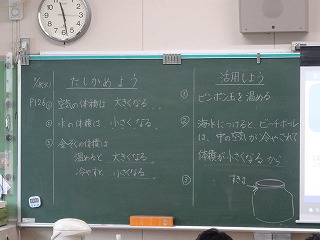 たしかめよう
P126
① 空気の体積は 大きくなる。
② 水の体積は 小さくなる。
③ 金ぞくの体積は
温めると 大きくなる
冷やすと 小さくなる
活用しよう
① ピンポン玉を温める
② 海水につけると、ビーチボール
は、中の空気が冷やされて
体積が小さくなるから
③ すきま